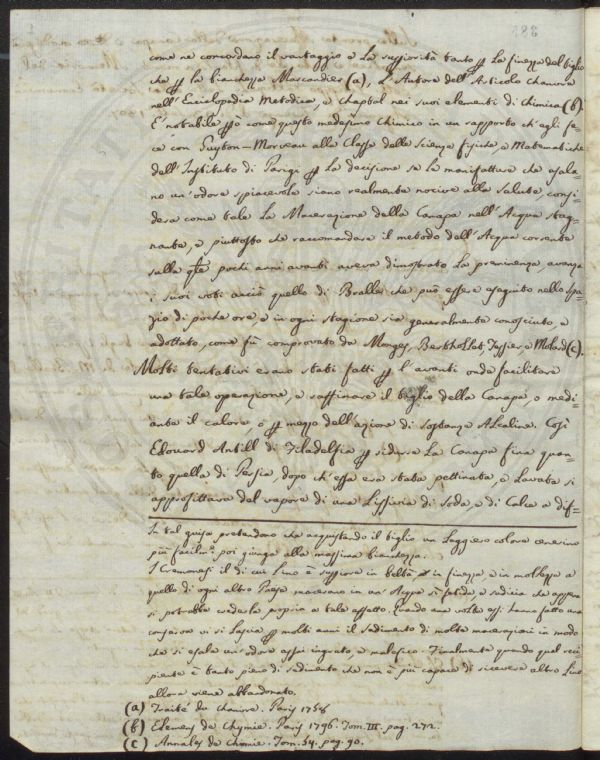 come ne concordano il vantaggio e la superiorità tanto per la finezza del tiglio
che per la bianchezza Marcandier (a), l'Autore dell'Articolo Chanvre
nell'Enciclopedia Metodica, e Chaptal nei suoi elementi di chimica (b)
E' notabile però come questo medesimo Chimico in un rapporto ch'egli fe=
ce con Guyton-Morveau alla Classe delle Scienze fisiche, e Matematiche
dell'Instituto di Parigi per la decisione se le manifatture che esala
no un'odore spiacevole siano realmente nocive alla salute, consi=
dera come tale la Macerazione della Canapa nell'Acqua stag=
nante, e piuttosto che raccomandare il metodo dell'Acqua corrente
sulla qle pochi anni avanti aveva dimostrato la preminenza, avanza
i suoi voti acciò quello di Bralle che può essere eseguito nello spa=
zio di poche ore, e in ogni stagione sia generalmente conosciuto, e
adottato, come fù comprovato da Monges, Berthollet, Tessier, e Molard (c).
Molti tentativi erano stati fatti per l'avanti onde facilitare
una tale operazione, e raffinare il tiglio della Canapa, o medi=
ante il calore, o per mezzo dell'azione di sostanze Alcaline. Così
Edouard Antill di Filadelfia per ridurre la Canapa fina quan=
to quella di Persia, dopo ch'essa era stata pettinata, e lavata si
approfittava del vapore di una Lissivia di Soda, e di Calce a dif=
In tal guisa pretendono che acquistando il tiglio un leggiero colore cenerino
più facilm.e poi giunga alla massima bianchezza.
I Cremonesi il di cui Lino è superiore in beltà in finezza, e in mollezza a
quello di ogni altro Paese macerano in un'Acqua sì fetida, e sudicia che appena
si potrebbe crederla propria a tale effetto. Quando una volta essi hanno fatto una
conserva vi si lascia per molti anni il sedimento di molte macerazioni in modo
che si esala un'odore assai ingrato, e malefico. Finalmente quando quel reci
piente è tanto pieno di sedimento che non è più capace di ricevere altro Lino
allora viene abbandonato.
(a) Traité du chanvre. Paris 1758
(b) Elemens de Chymie. Paris 1796. Tom. III. pag. 272.
(c) Annales de Chimie. Tom. 54. pag. 90.